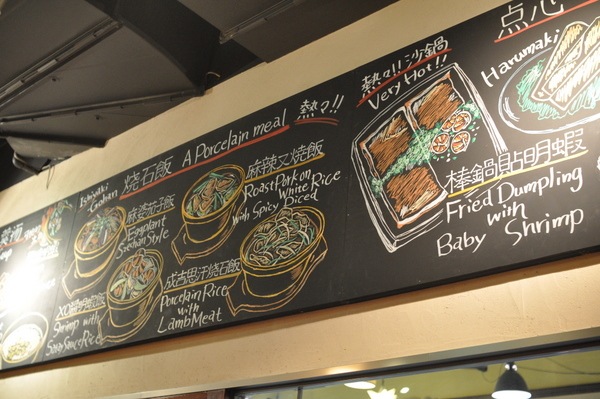 焼石飯 A Porcelain meal 熱々!!
Ishiyaki
Gohan
麻婆茄子飯
Szechan Style
麻辣叉焼飯
Roast Pork on
White Rice
With Spicy Diced
XO醤明蝦飯
Shrimp with
Rice
成吉思汗焼石飯
Porcelain Rice
with
Lamb Meat
熱々!! 沙鍋
Very Hot!!
棒鍋貼明蝦
Fried Dumpling
with
Baby Shrimp
点心
Harumaki